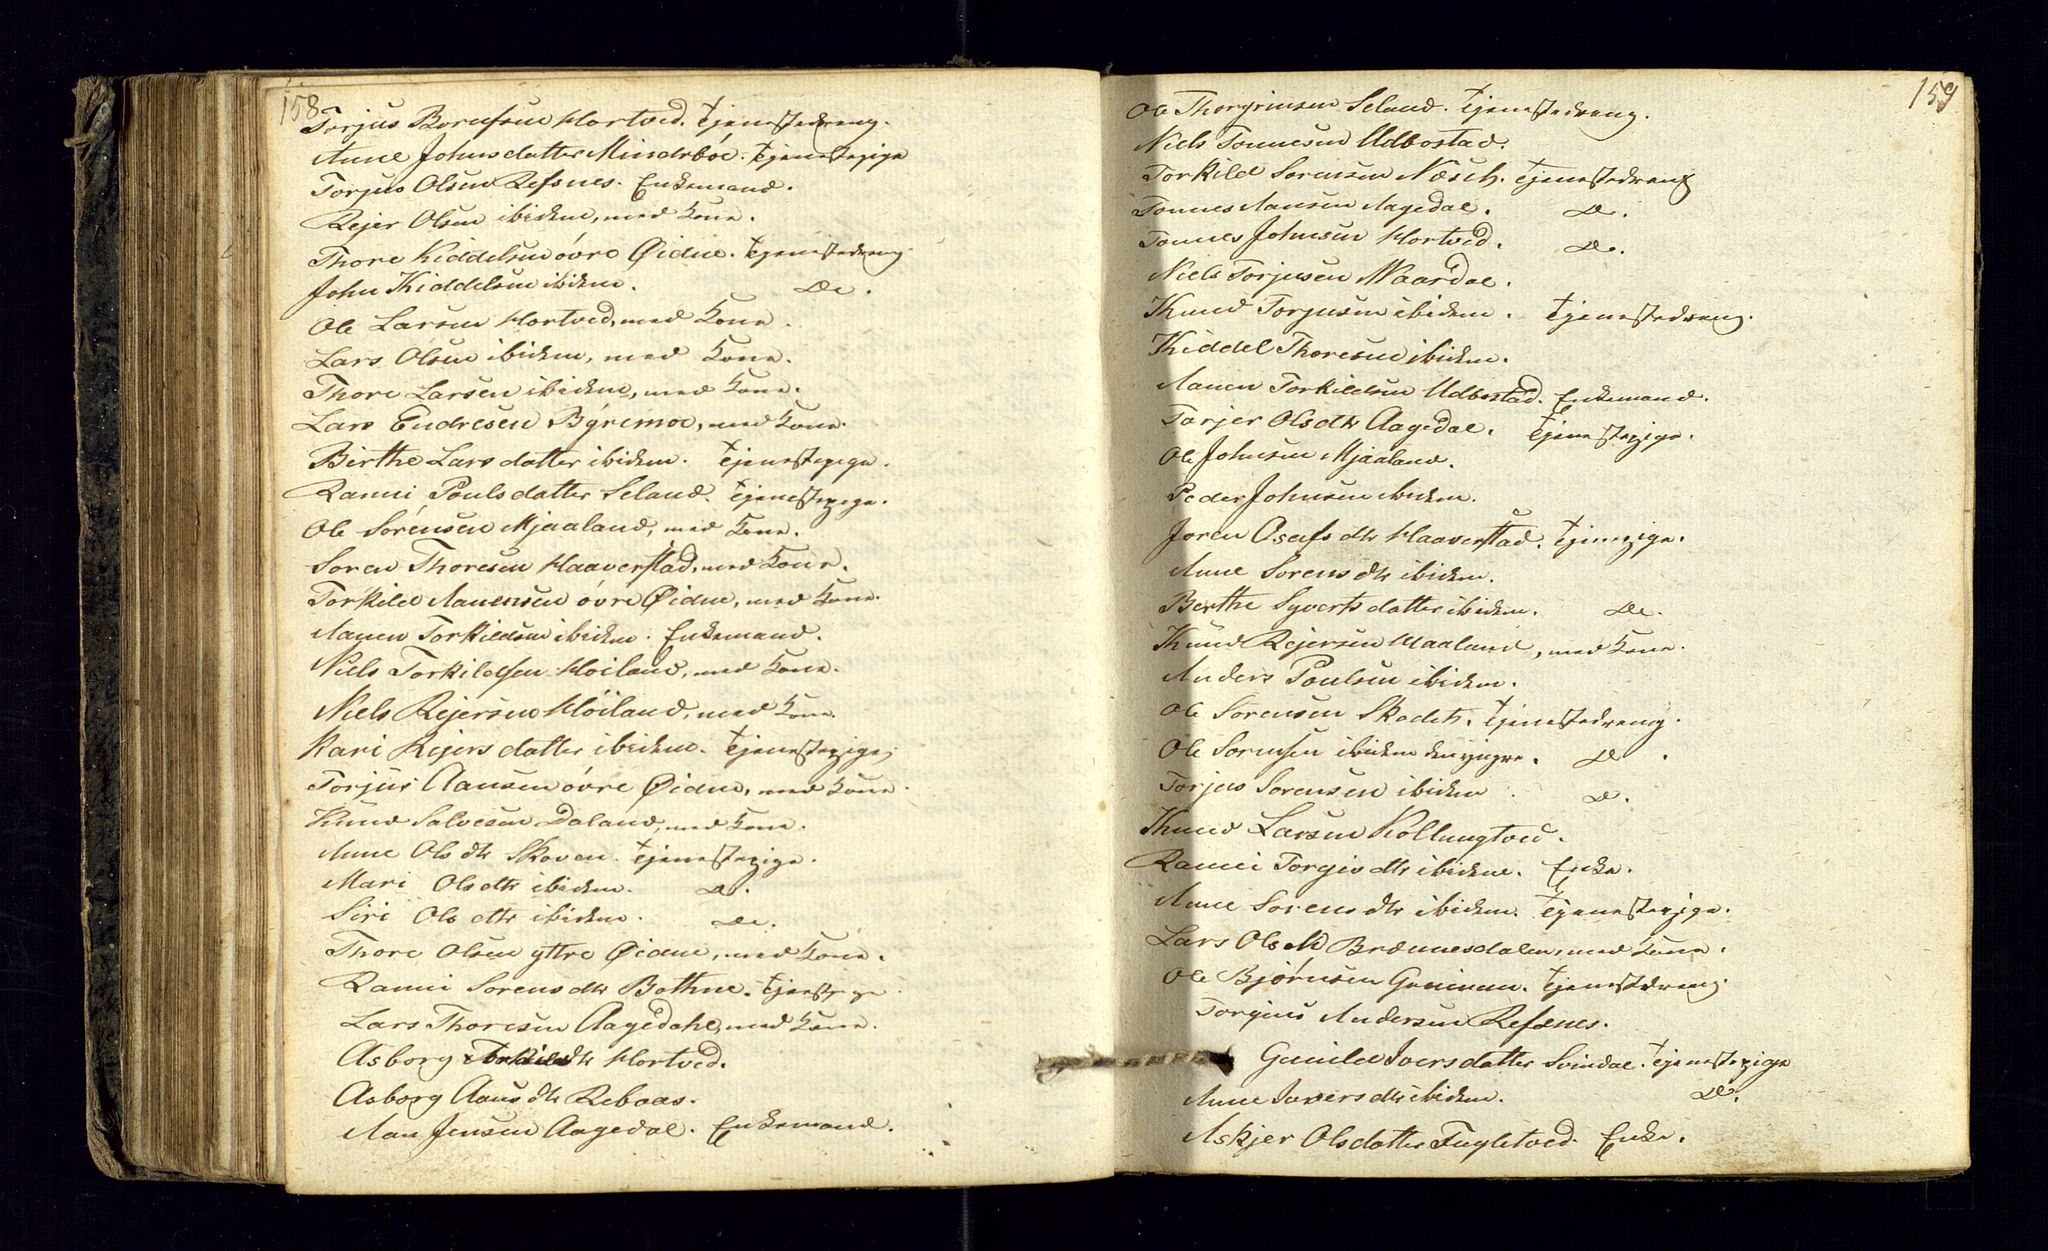 158
Torjus Berulsen Hortved. Tjenestedreng.
Anne Johnsdatter Mindrebóe. Tjenestepige
Torjus Olsen Refsnes. Enkemand.
Rejer Olsen ibidem, med Kone.
Thore Kiddelsen óvre Øidne. Tjenestedreng
John Kiddelsen ibidem. Do.
Ole Larsen Hortved, med Kone.
Lars Olsen ibidem, med Kone.
Thore Larsen ibidem, med Kone.
Lars Endresen Býremoe, med Kone.
Birthe Larsdatter ibidem. Tjenestepige.
Ranni Poulsdatter Seland. Tjenestepige.
Ole Sórensen Mjaaland, med Kone.
Soren Thoresen Haaverstad, med Kone.
Torkild Aanensen óvre Øidne, med Kone.
Aanen Torkildsen ibidem. Enkemand.
Niels Torkildsen Hóiland, med Kone.
Niels Rejersen Hóiland, med Kone.
Kari Rejersdatter ibidem. Tjenestepige.
Torjus Aansen óvre Øidne, med Kone.
Knud Salvesen Daland, med Kone.
Anne Olsdtr Skoven. Tjenestepige.
Mari Olsdtr ibidem. Do.
Siri Olsdtr ibidem. Do.
Thore Olsen yttre Øidne, med Kone.
Ranni Sorensdtr Bothne. Tjenestpige
Lars Thoresen Aagedahl, med Kone.
Asborg Torkildsdtr Hortved.
Asborg Aansdtr Rebaas.
Aan Jensen Aagedal. Enkemand.
159
Ole Thorgrimsen Seland. Tjenestedreng.
Niels Tonnesen Udbostad.
Torkild Sorensen Nøsch. Tjenestedreng
Tonnes Aansen Aagedal. Do.
Tonnes Johnsen Hortved. Do.
Niels Torjusen Waardal.
Knud Torjusen ibidem. Tjenestedreng.
Kiddel Thoresen ibidem.
Aanen Torkildsen Udbostad. Enkemand.
Torjer Olsdtr Aagedal. Tjenestepige.
Ole Johnsen Mjaaland.
Peder Johnsen ibidem.
Joren Asulfsdtr Haaverstad. Tjenepige.
Anne Sorensdtr ibidem.
Berthe Syvertsdatter ibidem. Do.
Knud Rejersen Haaland, med Kone.
Anders Poulsen ibidem.
Ole Sorensen Skoch. Tjenestedreng.
Ole Sorensen ibidem den yngre. Do.
Torjus Sorensen ibidem. Do.
Knud Larsen Kollungtved.
Ranni Torgisdtr ibidem. Enke.
Anne Sorensdtr ibidem. Tjenestepige.
Lars Ols Brennesdalen, med Kone.
Ole Bjórnsen Tjenestedreng.
Torgius Andersen Refsnes.
Gunild Iversdatter Svindal. Tjenestepige
Anne Iversdtr ibidem. Do.
Askjer Olsdatter Fugletved. Enke.